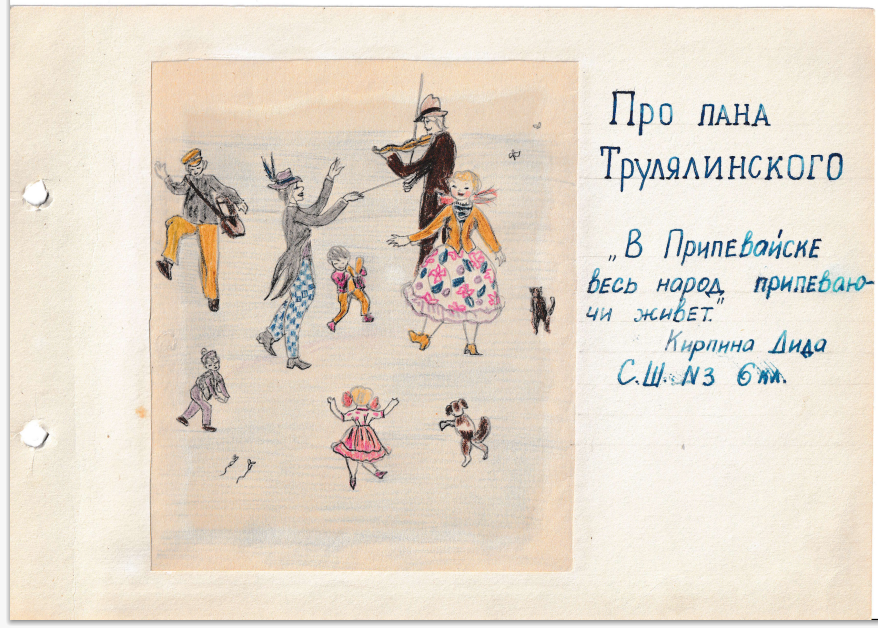 Про пана
Трулялинского
„В Припевайске
весь народ припеваю-
чи живет."
Кирпина Лида
С.Ш. N3 6 кл.